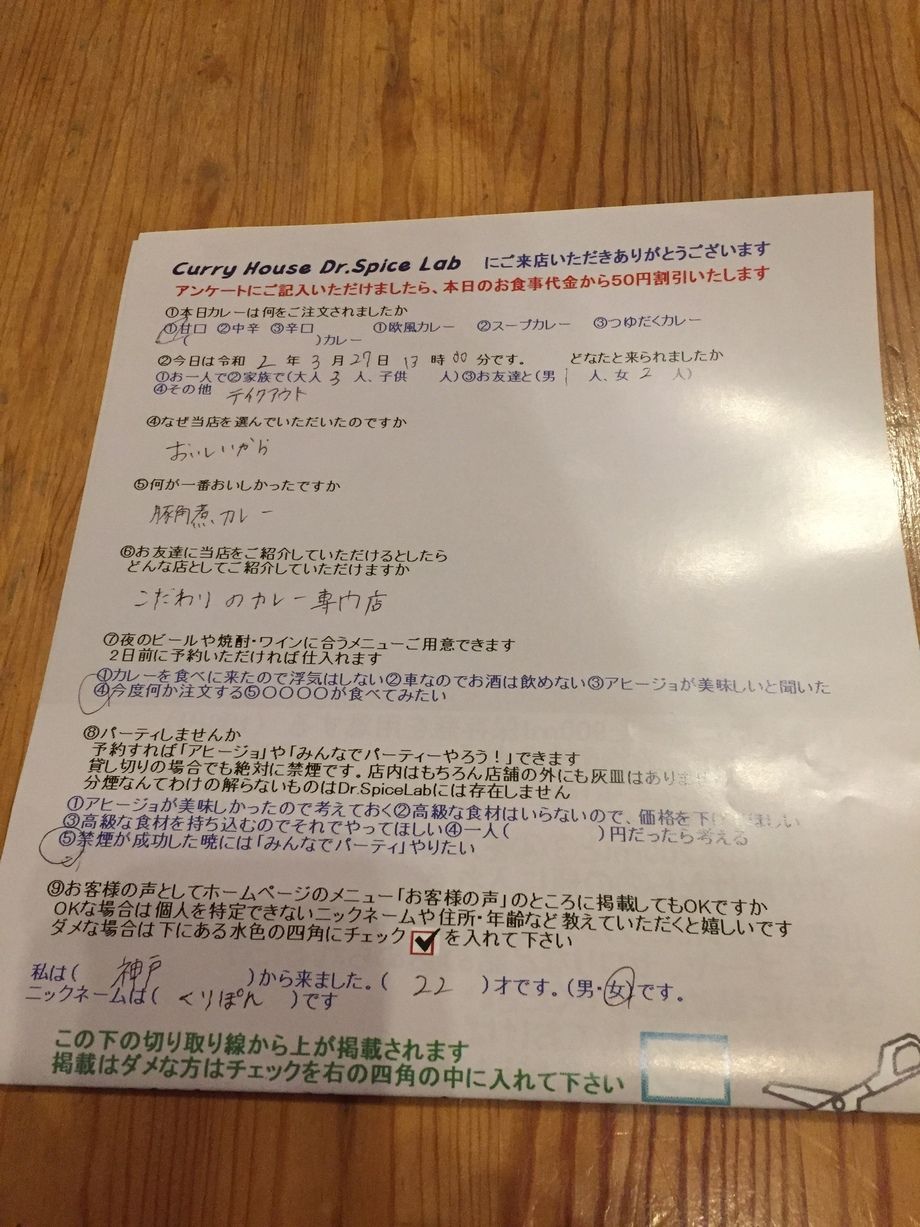 Curry House Dr.Spice Lab にご来店いただきありがとうございます
アンケートにご記入いただけましたら、本日のお食事代金から50円割引いたします
①本日カレーは何をご注文されましたか
①甘口 ②中辛 ③辛口 ①欧風カレー ②スープカレー ③つゆだくカレー
( )カレー
②今日は令和 2 年 3 月 27 日 13 時 00 分です。 どなたと来られましたか
①お一人で②家族で(大人 3 人、子供 人)③お友達と(男 1 人、女 2 人)
④その他 テイクアウト
④なぜ当店を選んでいただいたのですか
おいしいから
⑤何が一番おいしかったですか
豚角煮カレー
⑥お友達に当店をご紹介していただけるとしたら
どんな店としてご紹介していただけますか
こだわりのカレー専門店
⑦夜のビールや焼酎・ワインに合うメニューご用意できます
2日前に予約いただければ仕入れます
①カレーを食べに来たので浮気はしない②車なのでお酒は飲めない③アヒージョが美味しいと聞いた
④今度何か注文する⑤〇〇〇〇が食べてみたい
⑧パーティしませんか
予約すれば「アヒージョ」や「みんなでパーティーやろう!」できます
貸し切りの場合でも絶対に禁煙です。店内はもちろん店舗の外にも灰皿はありま
分煙なんてわけの解らないものはDr.SpiceLabには存在しません
①アヒージョが美味しかったので考えておく②高級な食材はいらないので、価格を下げ
③高級な食材を持ち込むのでそれでやってほしい④一人( )円だったら考える
⑤禁煙が成功した暁には「みんなでパーティ」やりたい
⑨お客様の声としてホームページのメニュー「お客様の声」のところに掲載してもOKですか
OKな場合は個人を特定できないニックネームや住所・年齢など教えていただくと嬉しいです
ダメな場合は下にある水色の四角にチェック を入れて下さい
私は( 神戸 )から来ました。( 22 )才です。(男・女)です。
ニックネームは( くりぽん )です
この下の切り取り線から上が掲載されます
掲載はダメな方はチェックを右の四角の中に入れて下さい